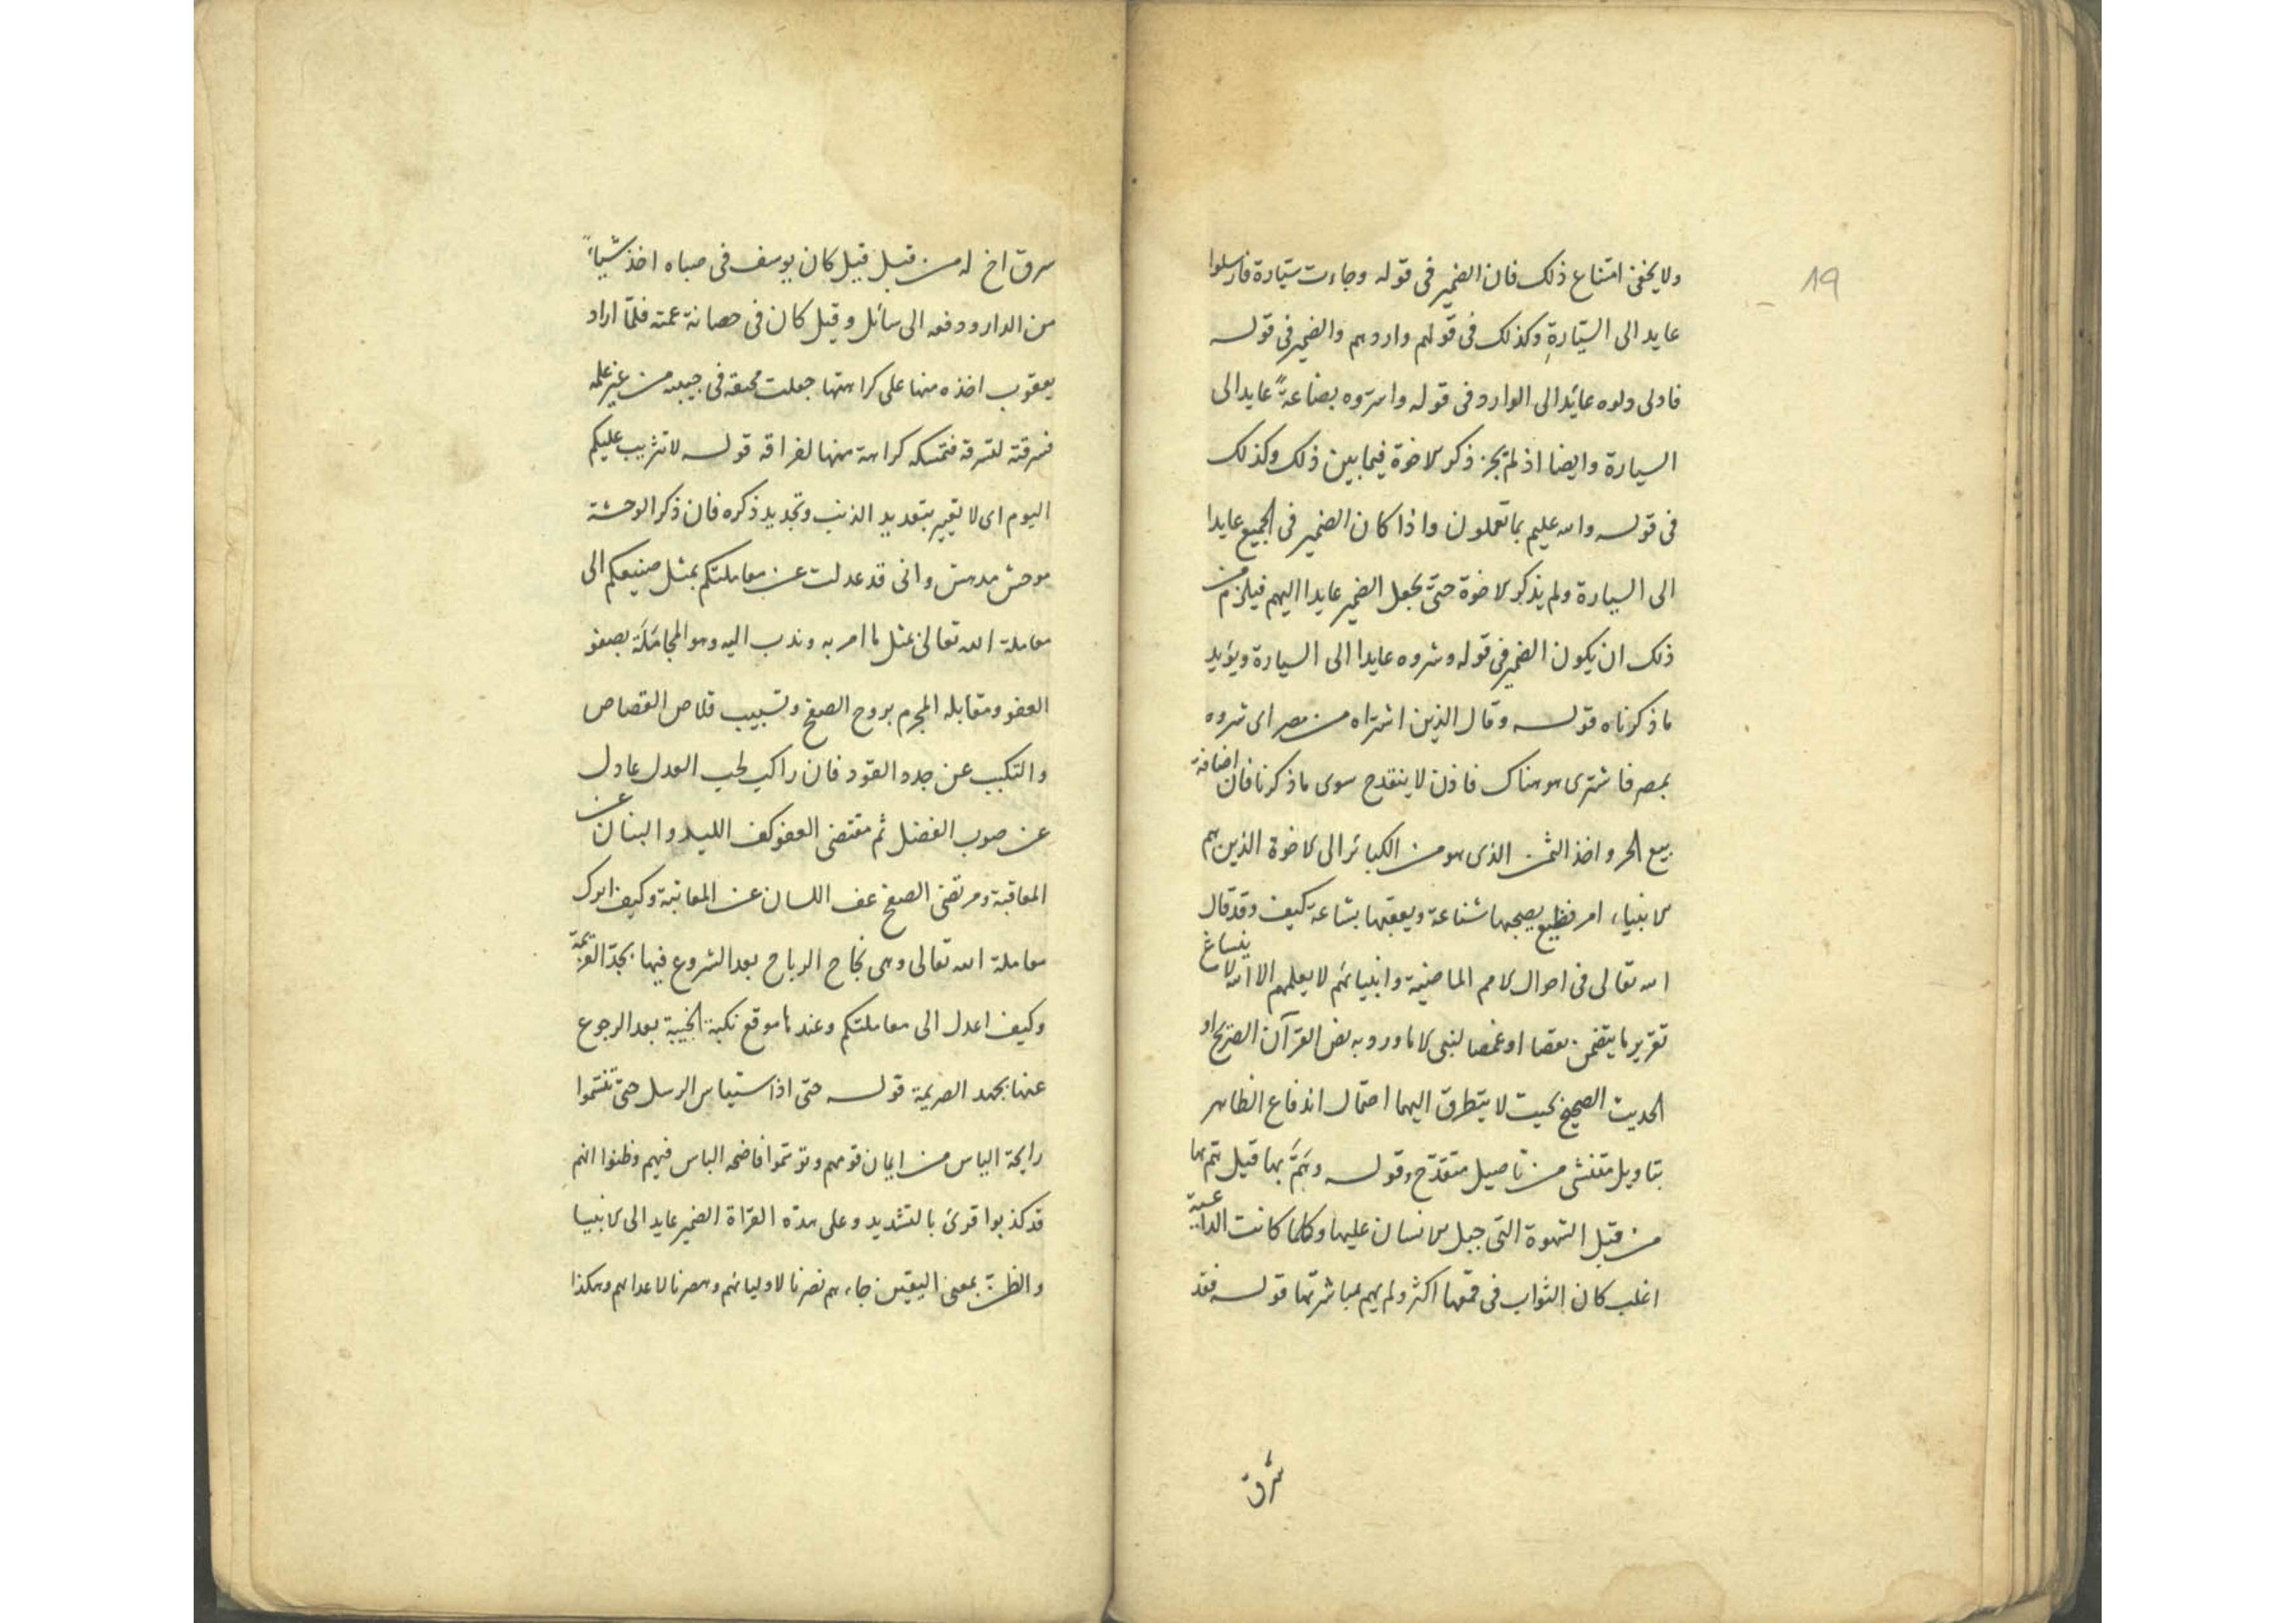 19
ولا يخفى امتناع ذلك فان الضمير فى قوله وجاءت سيّارة فارسلوا
عايد الى السيّارةِ وكذلك فى قولهم واردهم والضمير فى قوله
فادلى دلوه عائد الى الوارد وفى قوله واسرّوه بضاعةً عايد الى
السيارة وايضا اذ لم يجز ذكر الاخوة فيما بين ذلك وكذلك
فى قوله والله عليم بما تعملون واذا كان الضمير فى الجميع عايدا
الى السيارة ولم يذكر الاخوة حتى يجعل الضمير عايدا اليهم فيلزم من
ذلك ان يكون الضمير فى قوله وشروه عايدا الى السيارة ويؤيد
ما ذكرناه قوله وقال الذين اشتراه من مصر اى شروه
بمصر فاشترى هو هناك فاذن لا ينقدح سوى ما ذكرنا فان اضافة
بيع الحر واخذ الثمن الذى هو من الكبائر الى الاخوة الذين هم
الانبياء امر فظيع يصحبها شناعة ويعقبها بشاعة كيف وقد قال
الله تعالى فى احوال الامم الماضية وانبيائهم لا يعلمهم الا الله لا ينساغ
تقرير ما يتضمن نقصا او غمصا لنبى الا ما ورد به نص القرآن الصريح او
الحديث الصحيح بحيث لا يتطرق اليهما احتمال اندفاع الظاهر
بتاويل منتشى من تاصيل متقدح وقوله وهَمَّ بها قيل همّ بها
من قبل الشهوة التى جبل الانسان عليها وكلما كانت الداعية
اغلب كان الثواب فى قمعها اكثر ولم يهم بمباشرتها قوله فقد
سرق
سرق اخ له من قبل قيل كان يوسف فى صباه اخذ شيأً
من الدار ودفعه الى سائل وقيل كان فى حصانة عمته فلمّا اراد
يعقوب اخذه منها على كراهتها جعلت مخنقة فى جيبه من غير علمه
فسرقته لتسرقه فتمسكه كراهة منها لفراقه قوله لا تثريب عليكم
اليوم اى لا تعيير بتعديد الذنب وتجديد ذكره فان ذكر الوحشة
موحش مدهش وانى قد عدلت عن معاملتكم بمثل صنيعكم الى
معاملة الله تعالى بمثل ما امر به وندب اليه وهو المجامَلَة بصفو
العفو ومقابله المجرم بروح الصفح وتسبيب قلاص القصاص
والتكبب عن جدد القود فان راكب لحب العدل عادل
عن صوب الفضل ثم مقتضى العفو كف اليد والبنان عن
المعاقبة ومرتضى الصفح عف اللسان عن المعاتبة وكيف اترك
معاملة الله تعالى وهى نجاح الرباح بعد الشروع فيها بجدّ العزيمة
وكيف اعدل الى معاملتكم وعندها موقع نكبة الخيبة بعد الرجوع
عنها بجهد الصريمة قوله حتى اذا ستيأس الرسل حتى تنسّموا
رايحة اليأس من ايمان قومهم وتوسّموا فاضحه الباس فيهم وظنوا انهم
قد كذبوا قرئ بالتشديد وعلى هذه القرّاة الضمير عايد الى الانبيا
والظنّ بمعنى اليقين جاءهم نصرنا لاوليائهم وهصرنا لاعدائهم وهكذا